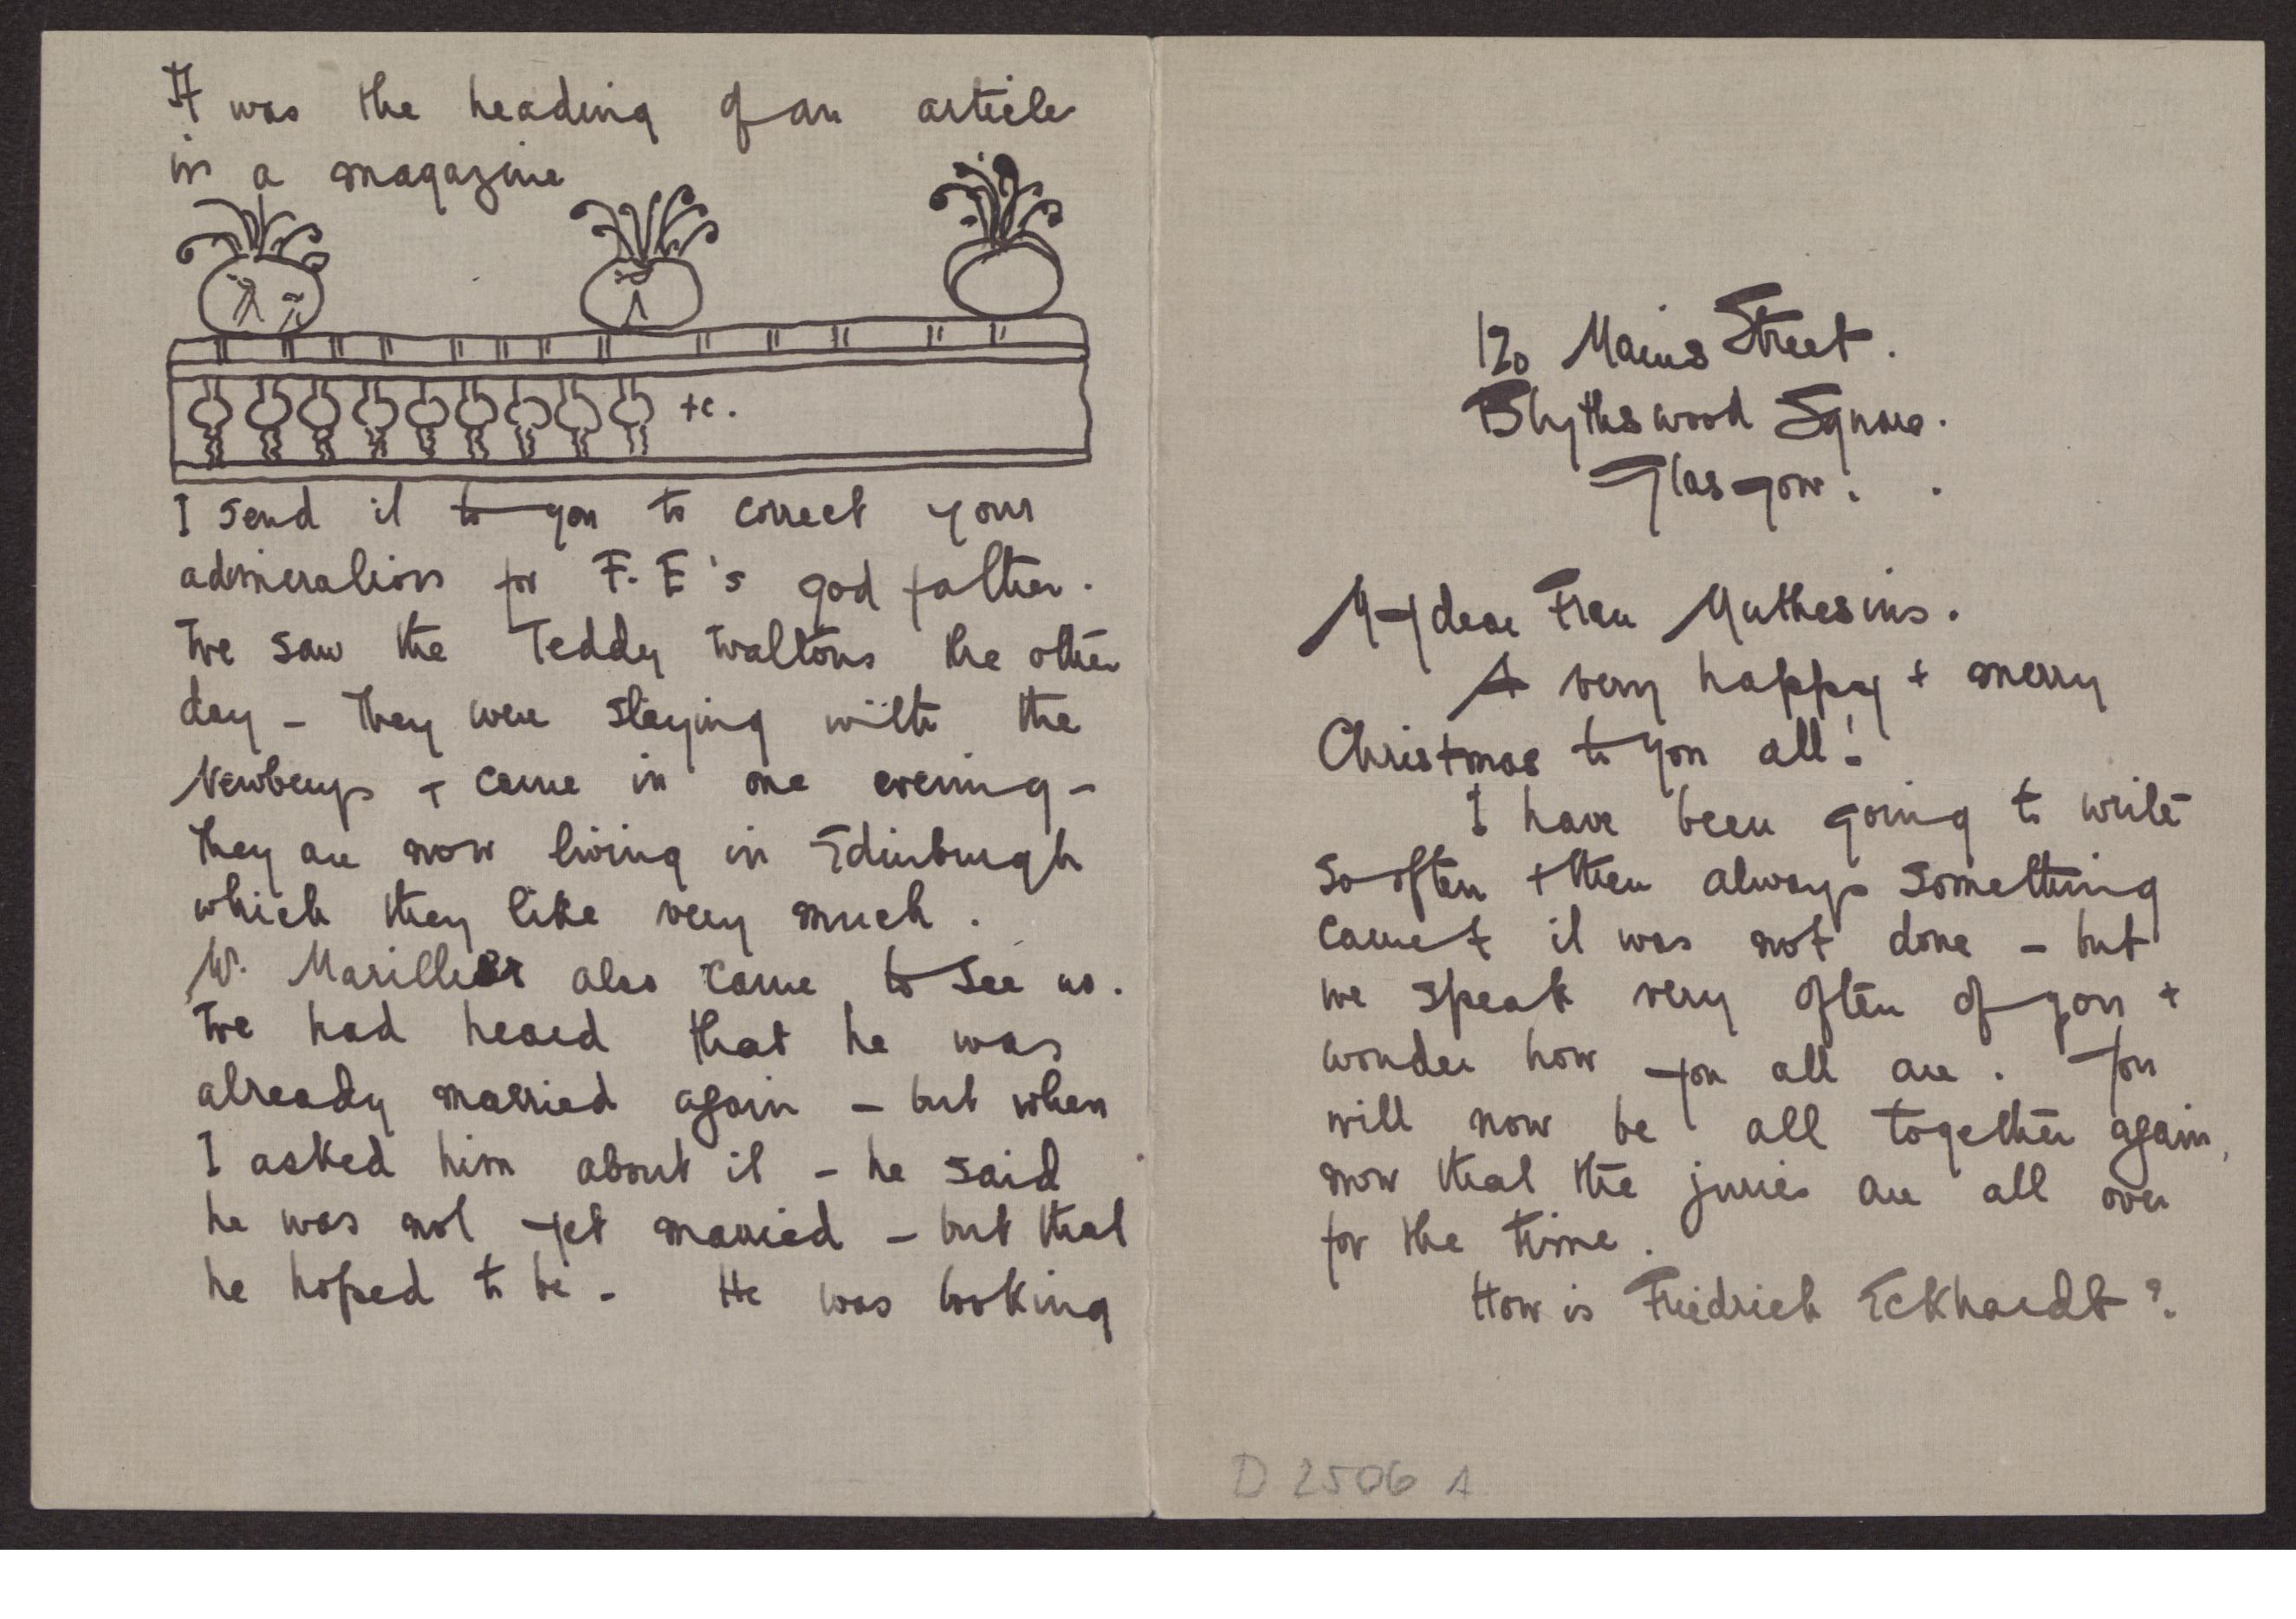 It was the heading of an article
in a magazine
+c.
I send it to you to correct your
admiration for F. E's god father.
We saw the Teddy Waltons the other
day – They were staying with the
Newberys + came in one evening –
They are now living in Edinburgh
which they like very much.
Mr. Marillier also came to see us.
We had heard that he was
already married again – but when
I asked him about it – he said
he was not yet married – but that
he hoped to be – He was looking
120 Mains Street.
Blythswood Square.
Glasgow.
My dear Frau Muthesius.
A very happy + merry
Christmas to you all!
I have been going to write
so often + then always something
came + it was not done – but
we speak very often of you +
wonder how you all are. You
will now be all together again,
now that the juries are all over
for the time.
How is Friedrich Eckhardt?
D 2506 A